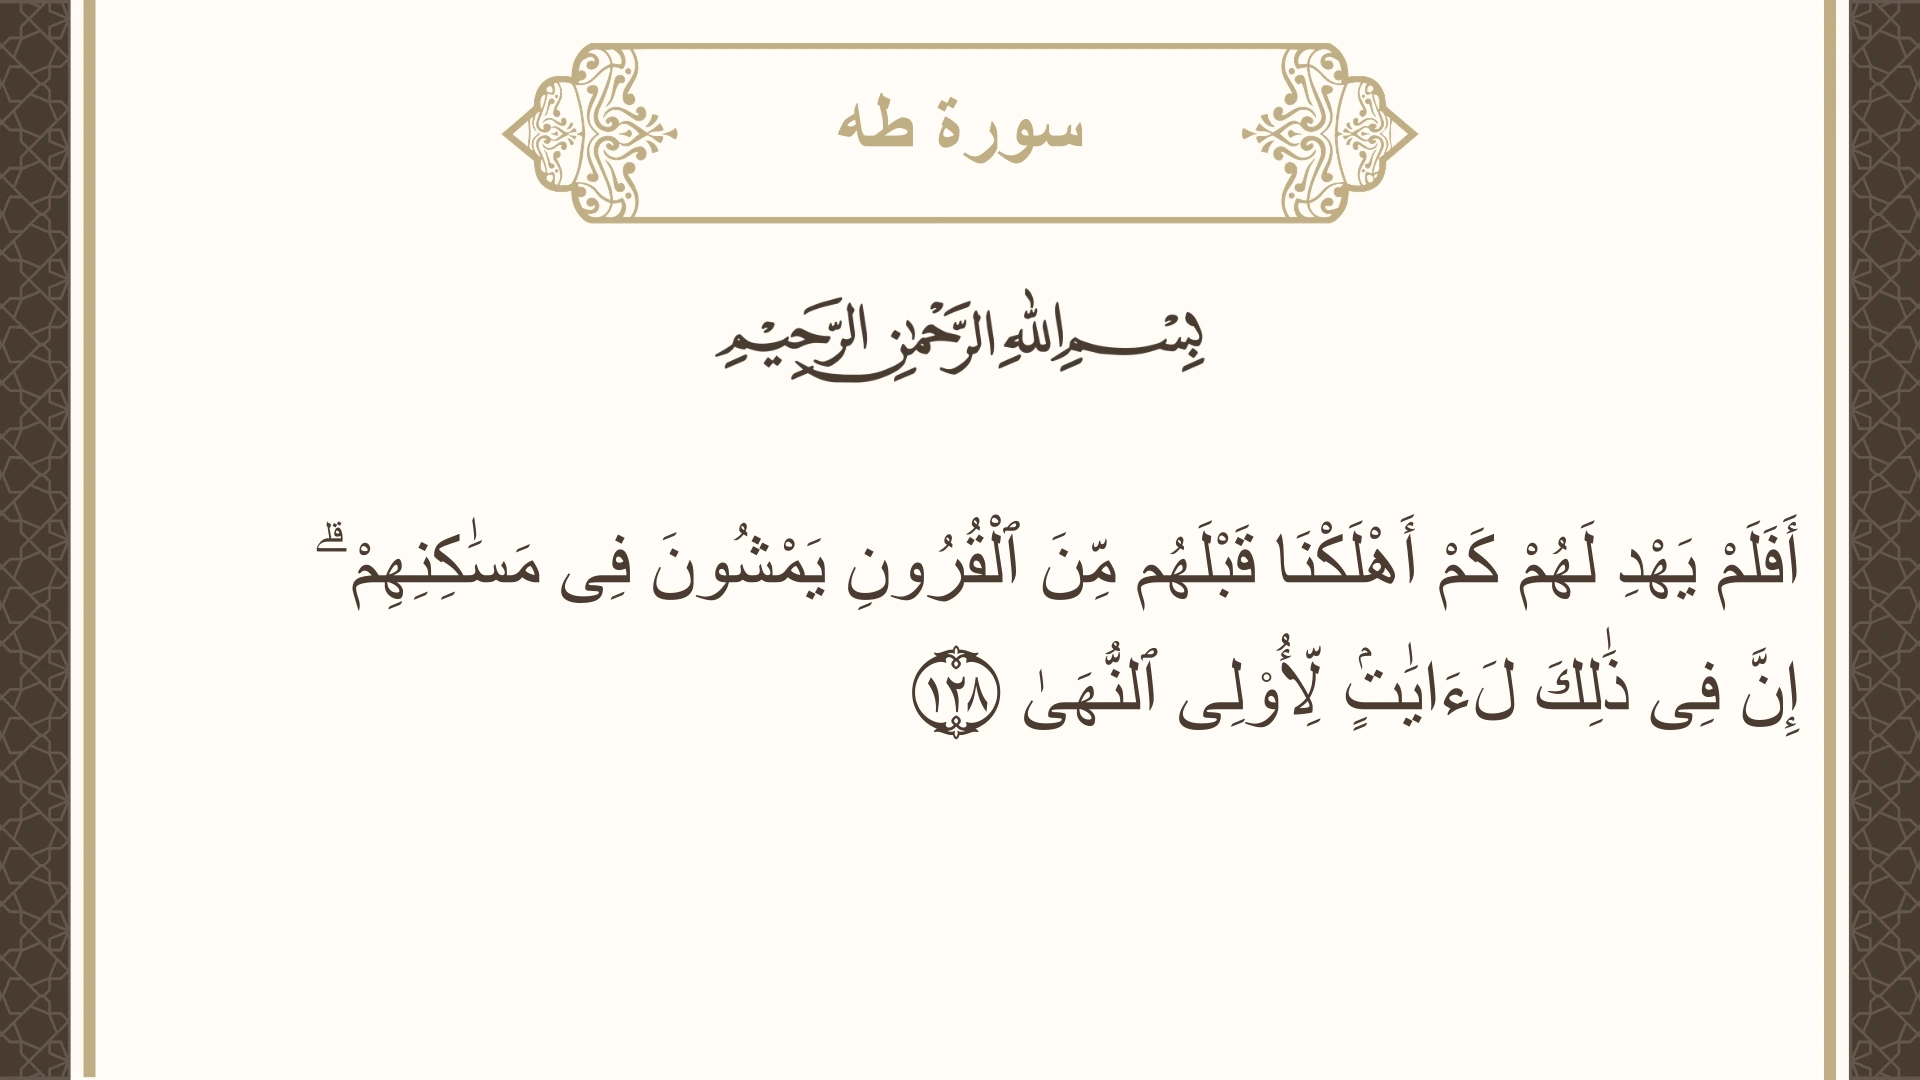 سورة طه
بِسْمِ اللهِ الرَّحْمٰنِ الرَّحِيْمِ
أَفَلَمْ يَهْدِ لَهُمْ كَمْ أَهْلَكْنَا قَبْلَهُم مِّنَ ٱلْقُرُونِ يَمْشُونَ فِى مَسَٰكِنِهِمْ ۗ
إِنَّ فِى ذَٰلِكَ لَءَايَٰتٍۢ لِّأُو۟لِى ٱلنُّهَىٰ ١٢٨